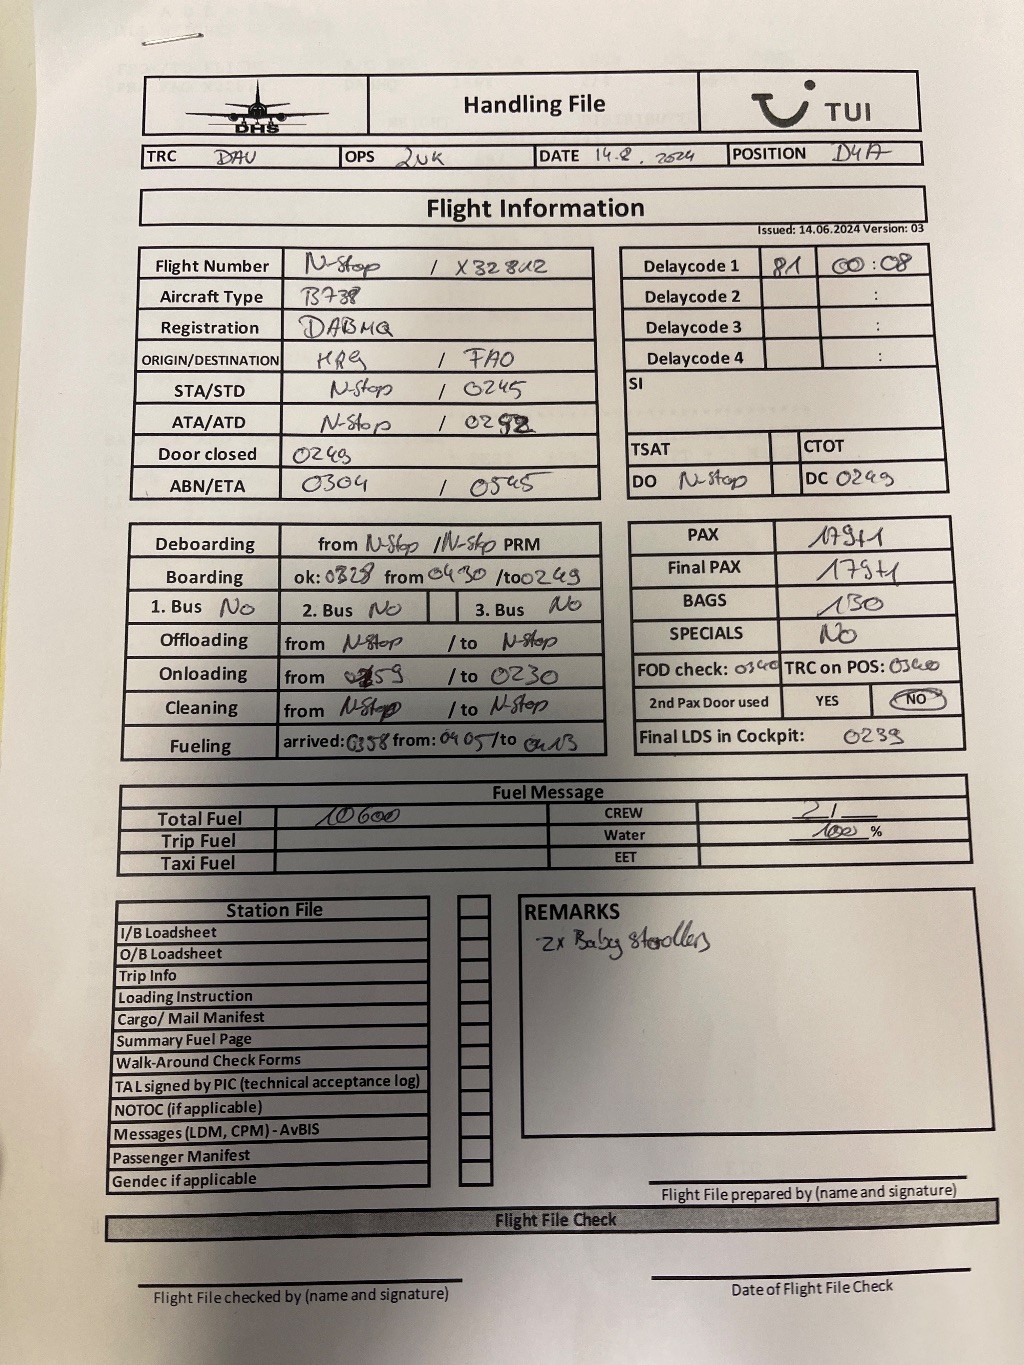 DHS Handling File TUI
TRC DAU OPS DATE 14.8.2024 POSITION D4A
Flight Information
Issued: 14.06.2024 Version: 03
Flight Number N-Stop / X32812 Delaycode 1 81 00:08
Aircraft Type B738 Delaycode 2 :
Registration DABMQ Delaycode 3 :
ORIGIN/DESTINATION / FAO Delaycode 4 :
STA/STD N-Stop / 0245 SI
ATA/ATD N-Stop /
TSAT CTOT
Door closed 0249
DO N-Stop DC 0249
ABN/ETA 0304 / 0545
Deboarding from N-Stop / N-Stop PRM PAX 179+1
Boarding ok: 0328 from 0430 /to 0249 Final PAX 179+1
1. Bus No 2. Bus No 3. Bus No BAGS 130
Offloading from N-Stop / to N-Stop SPECIALS No
Onloading from / to 0230 FOD check: 0340 TRC on POS: 0340
Cleaning from N-Stop / to N-Stop 2nd Pax Door used YES NO
Fueling arrived: 0358 from: 0405 /to 0413 Final LDS in Cockpit: 0239
Fuel Message
Total Fuel 10600 CREW 2/
Trip Fuel Water 100 %
Taxi Fuel EET
Station File
I/B Loadsheet
O/B Loadsheet
Trip Info
Loading Instruction
Cargo/ Mail Manifest
Summary Fuel Page
Walk-Around Check Forms
TAL signed by PIC (technical acceptance log)
NOTOC (if applicable)
Messages (LDM, CPM) - AvBIS
Passenger Manifest
Gendec if applicable
REMARKS
-2x Baby strollers
Flight File prepared by (name and signature)
Flight File Check
Flight File checked by (name and signature)
Date of Flight File Check